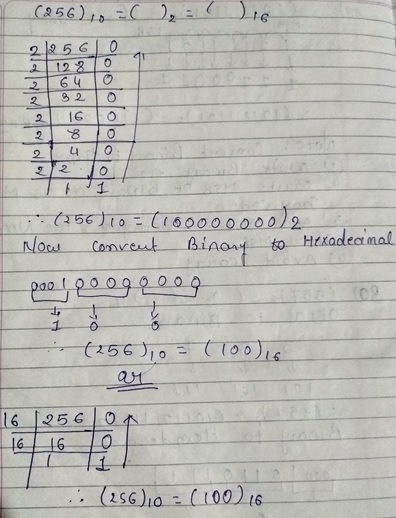 (256)10 = ( )2 = ( )16
2 | 256 | 0
2 | 128 | 0
2 | 64 | 0
2 | 32 | 0
2 | 16 | 0
2 | 8 | 0
2 | 4 | 0
2 | 2 | 0
1 | 1
∴ (256)10 = (100000000)2
Now convent Binary to Hexadecimal
0001 0000 0000
1 0 0
∴ (256)10 = (100)16
or
16 | 256 | 0
16 | 16 | 0
1 | 1
∴ (256)10 = (100)16